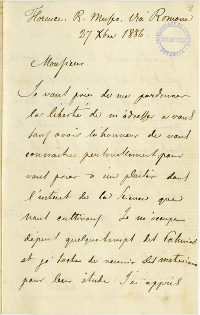 Florence. R. Museo. Via Romana
27 Xbre 1886
Monsieur.
Je vous prie de me pardonner
la liberté de m'adresser a vous
sans avoir l'honneur de vous
connaitre personellement pour
vous prier d'un plaisir dans
l'intéret de la Science que
vous cultivons. Je m'occupe
depuis quelque temps des
et je tache de reunir des materiaux
pour leur étude. J'ai appris